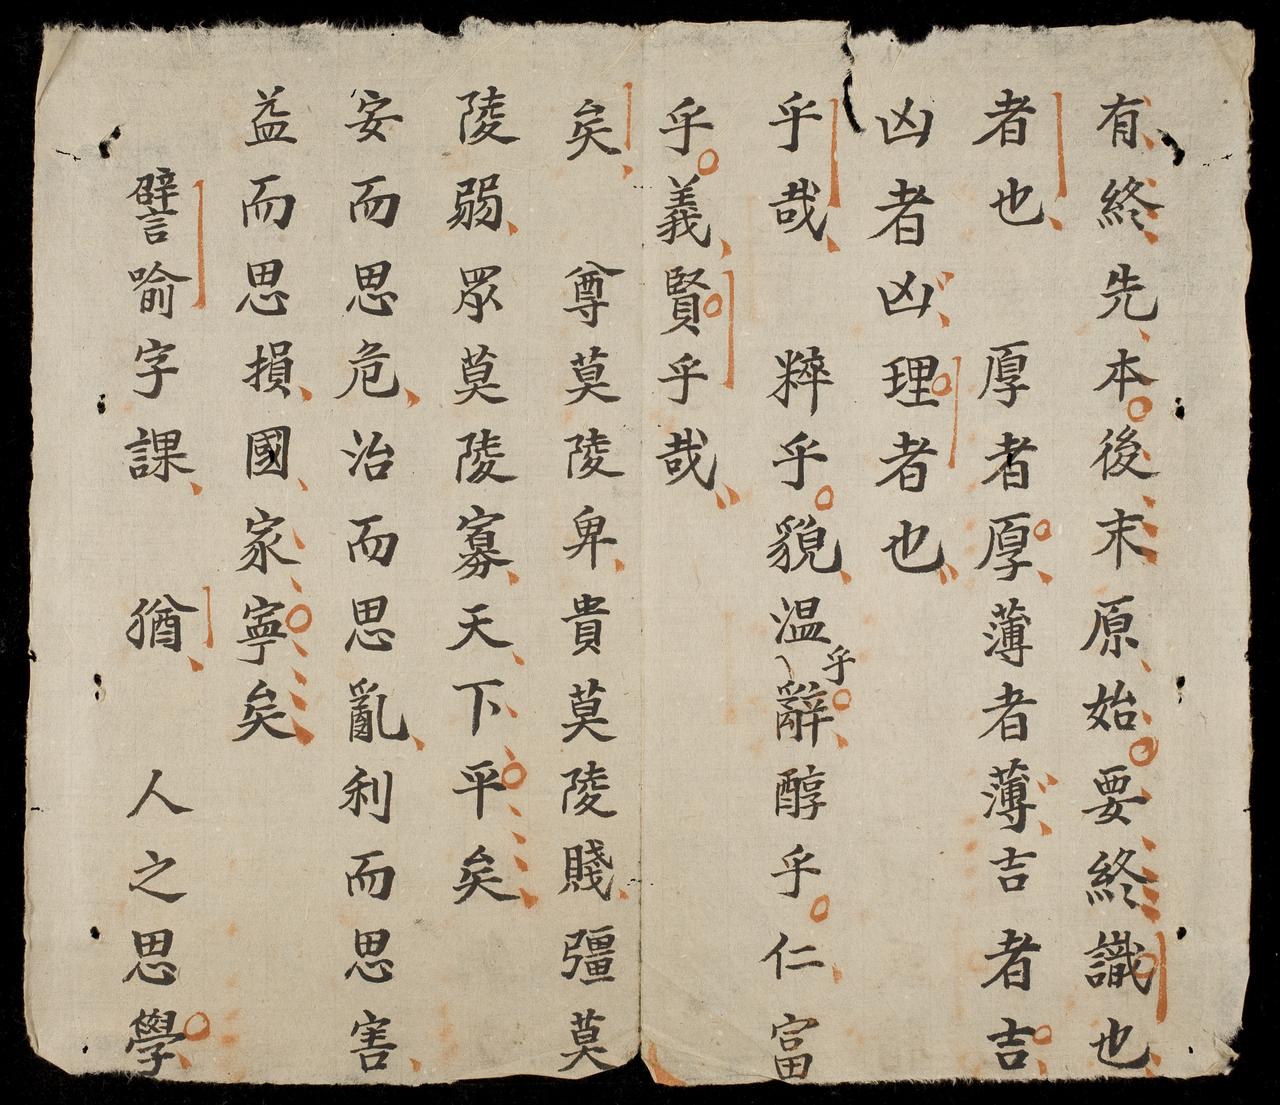 有終先本後末原始要終識也
者也　厚者厚薄者薄吉者吉
凶者凶理者也
乎哉　粹乎貌溫乎辭醇乎仁富
乎義賢乎哉
矣　尊莫陵卑貴莫陵賤彊莫
陵弱眾莫陵寡天下平矣
安而思危治而思亂利而思害
益而思損國家寧矣
譬喻字課　猶　人之思學